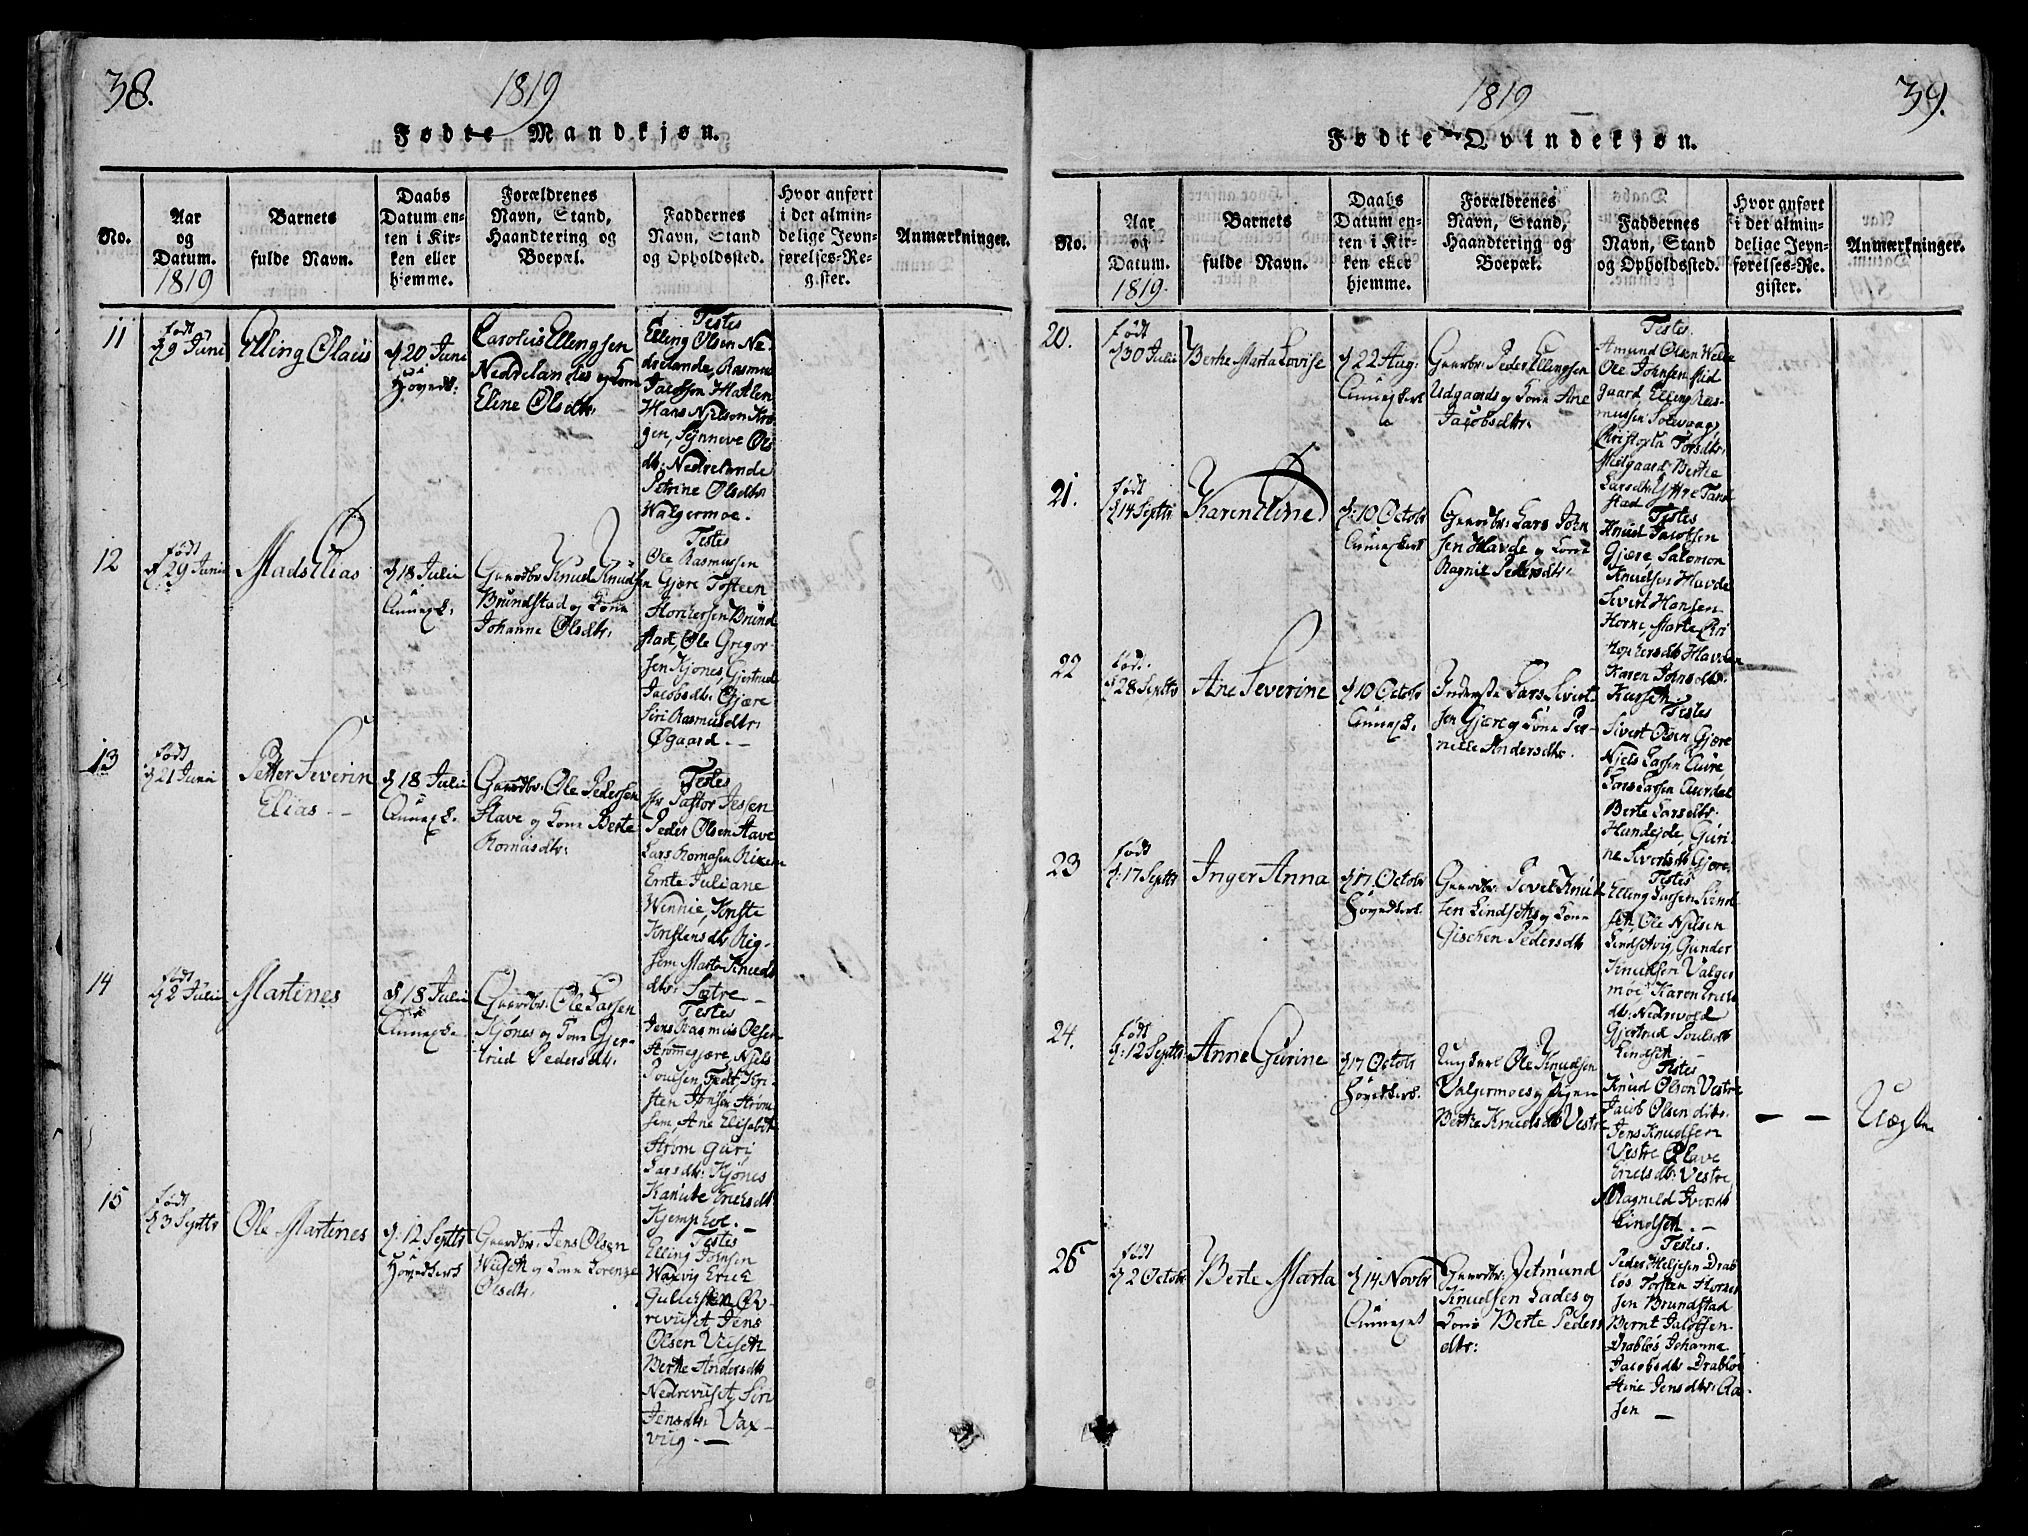 38.
1819
Fødte Mandkjøn.
No.
Aar og Datum. 1819
Barnets fulde Navn.
Daabs Datum enten i Kirken eller hjemme.
Forældrenes Navn, Stand, Haandtering og Boepæl.
Faddernes Navn, Stand og Opholdssted.
Hvor anført i det almindelige Jevnførelses-Register.
Anmærkninger.
11
født
9 Juni
Elling Olaus
20 Juni
Hovedk:
Carolus Ellingsen
Nedrelandes og Kone
Eline Olsdtr:
Testes
Elling Olsen Ne-
drelande, Rasmus
Jacobsen Hatlen
Hans Njelsen Kro-
gen, Synneve Ols
dtr: Nedrelande
Petrine Olsdtr
Walgermoe.
12
født
29 Juni
Mads Elias
18 Juli
Annexk.
Gaardbr: Knud Knudsen
Brundstad og Kone
Johanne Olsdtr:
Testes
Ole Rasmussen
Gjære Tosteen
Brund
stad, Ole Gregor-
sen Kjones, Gjertrud
Jacobsdtr: Gjære
Siri Rasmusdtr:
Øgaard. -
13
født
21 Juni
Petter Severin
Elias -
18 Juli
Annexk.
Gaardbr: Ole Pedersen
Stave og Kone Berte
Romusdtr:
Testes
Hr Pastor Jessen
Peder Olsen Stave
Lars Romusen
Emte Juliane
Wennie,
Marte Knuds
dtr: Sætre -
14
født
2 Juli
Martines
18 Juli
Annexk.
Gaardbr: Ole Larsen
Kjønes og Kone Gjer-
trud Pedersdtr:
Testes
Jens Rasmus Olsen
Strømmegjære, Njels
Poulsen, Tedt, Kri-
sten Jonsen Strøm
sem, Ane Elisabet
Strøm Guri
Larsdtr: Kjønes
Kanute Ericksdtr
Kjemphol. -
15
født
3 Septbr
Ole Martines
12 Septbr
Hovedkirk
Gaardbr: Jens Olsen
Wiseth og Kone Lorenze
Olsdtr:
Testes
Elling Jonsen
Waxvig Erick
Gullicksen Ov-
reviset, Jens
Olsen Viseth
Berthe Andersdtr
Nedreviset, Siri
Jensdtr: Vax-
vig. -
1819
39.
Fødte Qvindekjøn.
No.
Aar og Datum. 1819.
Barnets fulde Navn.
Daabs Datum enten i Kirken eller hjemme.
Forældrenes Navn, Stand, Haandtering og Boepæl.
Faddernes Navn, Stand og Opholdssted.
Hvor anført i det almindelige Jevnførelses-Register.
Anmærkninger.
20.
født
30 Julii
Berte Marta Lovise
22 Aug:
Annexkirk
Gaardbr: Peder Ellingsen
Udgaards og Kone Ane
Jacobsdtr:
Testes
Amund Olsen Welle
Ole Johnsen Ud
gaard Elling Ras-
mussen Solevaag,
Torsdtr:
Melgaard. Berthe
Larsdtr Yttre Tand
stad
21.
født
14 Septbr
Karen Eline
10 Octobr
Annexkirk
Gaardbr: Lars John
sen Havde og Kone
Ragnie Pedersdtr:
Testes
Knud Jacobsen
Gjære, Salomon
Knudsen Havde
Sivert Hansen
Horne, Marte Chri
stophersdtr Havden
Karen Jonsdtr:
Kursen.
22
født
28 Septbr
Ane Severine
10 Octobr
Annexk.
Inderste Lars Sivert
sen Gjære og Kone Per-
nille Andersdtr:
Testes
Sivert Olsen Gjære
Njels Larsen Aure,
Lars Larsen Aurdal
Berte Larsdtr:
Hundejde, Guri-
ne Sivertsdtr Gjære.
23
født
17 Septbr
Inger Anna
17 Octobr
Hovedkirk.
Gaardbr: Povel Knud
sen Lindseths og Kone
Gjschen Pedersdtr
Testes
Elling Larsen Svind
seth, Ole Njelsen
Lindstvig, Gunder
Knudsen Valger
moe, Karen Ericks
dtr: Nedrevold
Gjertrud Poulsdtr
Lindseth -
24.
født
12 Septbr
Anne Gurine
17 Octobr
Hovedkirk.
Ungkarl Ole Knudsen
Valgermoes og Pigen
Berthe Knudsdtr Vestre
Testes
Knud Olsen Vestre
Jacob Olsen dito.
Jens Knudsen
Vestre Olave
Ericksdtr: Vestre,
Magnild Iversdtr
Lindseth. -
- -
Uægte
25
født
2 Octobr
Berte Marta
14 Novbr
Annexet
Gaardbr: Jetmund
Knudsen Lades og
Kone Berte Peders
dtr:
Testes.
Peder Heljesen Drab
løs Torsten Hornes
sen Brundstad
Bernt Jacobsen
Drabløs Johanne
Jacobsdtr Drabløs
Stine Jensdtr: Aa-
sen -